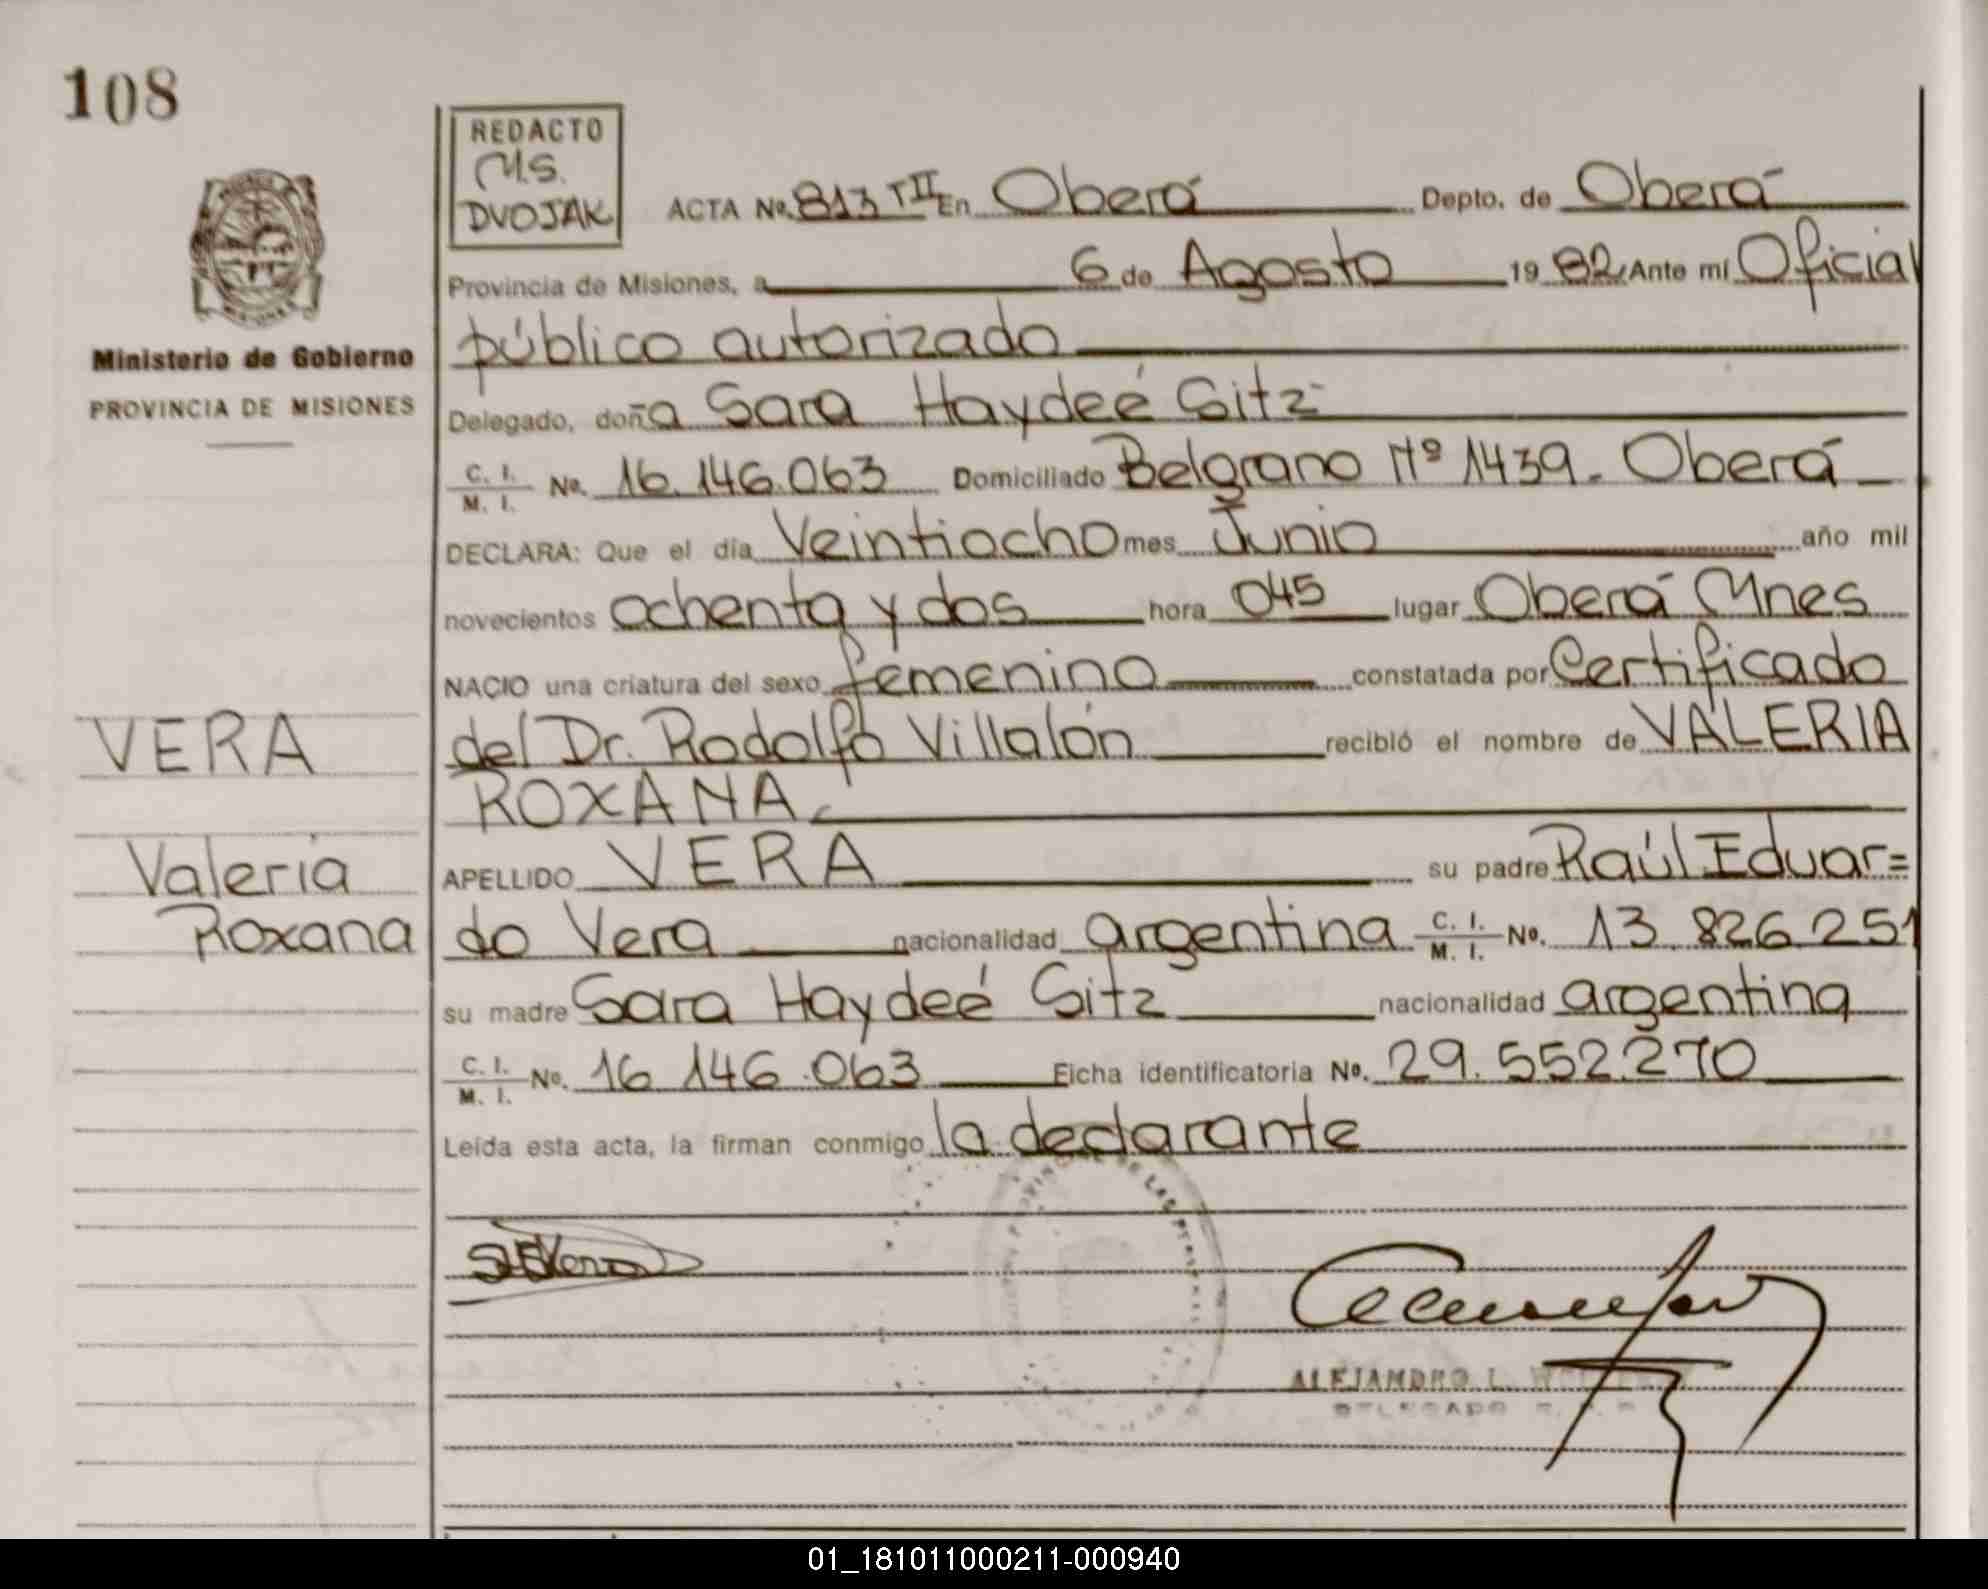 108
REDACTO
M.S.
DVOJAK
ACTA No. 813 TII En Oberá Depto. de Oberá
Provincia de Misiones, a 6 de Agosto 1982 Ante mí Oficial
Ministerio de Gobierno
PROVINCIA DE MISIONES
público autorizado
Delegado, doña Sara Haydeé Sitz
C. I.
M. I. No. 16.146.063 Domiciliado Belgrano Nº 1439. Oberá
DECLARA: Que el día Veintiocho mes Junio año mil
novecientos ochenta y dos hora 045 lugar Oberá Mnes
NACIO una criatura del sexo femenino constatada por Certificado
VERA
del Dr. Rodolfo Villalón recibió el nombre de VALERIA
ROXANA
Valeria
Roxana
APELLIDO VERA su padre Raúl Eduar=
do Vera nacionalidad argentina C. I.
M. I. No. 13.826.251
su madre Sara Haydeé Sitz nacionalidad argentina
C. I.
M. I. No. 16.146.063 Ficha identificatoria No. 29.552.270
Leída esta acta, la firman conmigo la declarante
ALEJANDRO L.
DELEGADO
01_181011000211-000940